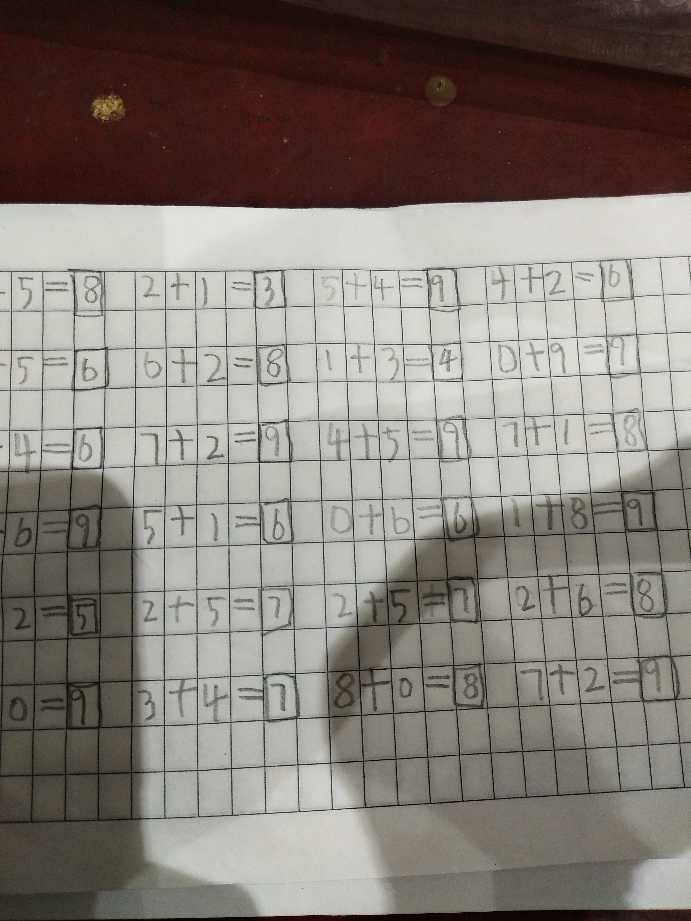 5=8 2+1=3 5+4=9 4+2=6
5=6 6+2=8 1+3=4 0+9=9
4=6 7+2=9 4+5=9 7+1=8
6=9 5+1=6 0+6=6 1+8=9
2=5 2+5=7 2+5=7 2+6=8
0=9 3+4=7 8+0=8 7+2=9